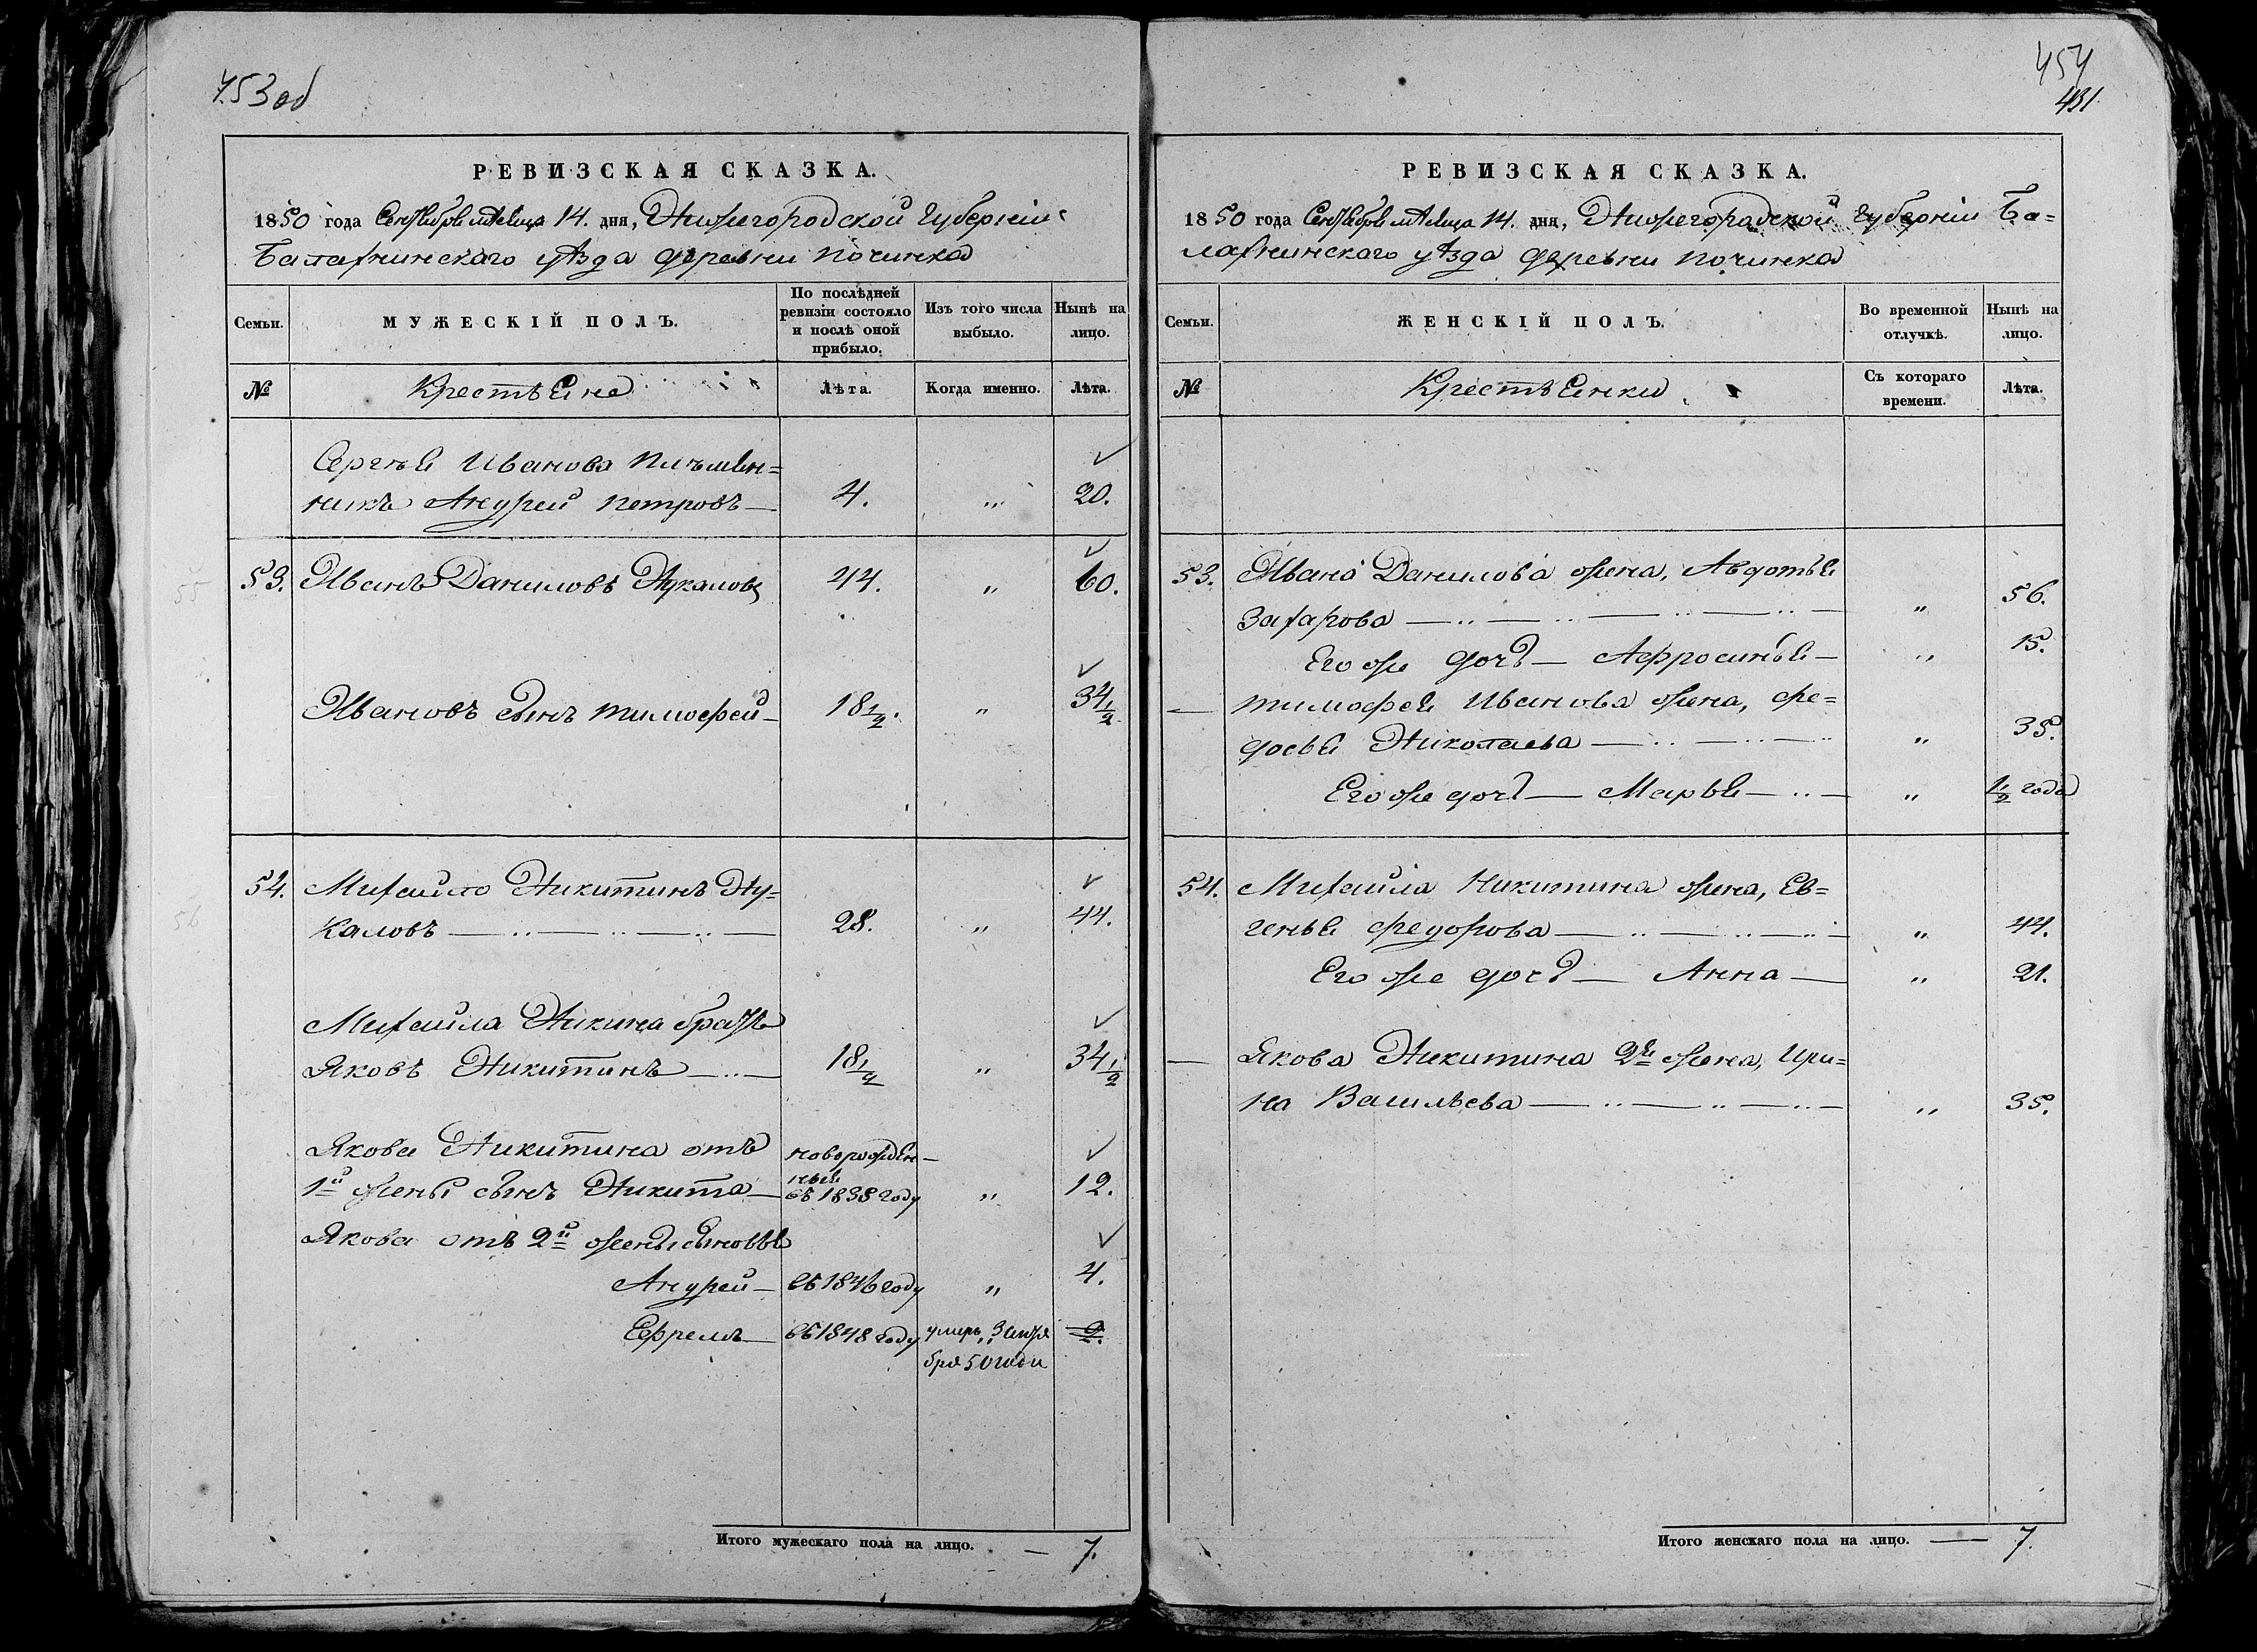 453 об
РЕВИЗСКАЯ СКАЗКА.
1850 года Сентября мѣсяца 14. дня, Нижегородской Губерніи
Балахнинскаго уѣзда деревни Починка
Семьи.
МУЖЕСКІЙ ПОЛЪ.
По послѣдней ревизіи состояло и послѣ оной прибыло.
Изъ того числа выбыло.
Нынѣ на лицо.
№
Крестьяне
Лѣта.
Когда именно.
Лѣта.
Сергѣя Иванова племян=
никъ Андрей Петровъ — 4. „ 20.
53. Иванъ Даниловъ Жукаловъ 44. „ 60.
Ивановъ сынъ Тимофей — 18 1/2. „ 34 1/2
54. Михайло Никитинъ Жу=
каловъ — 28. „ 44.
Михайла Никина братъ
Яковъ Никитинъ — 18 1/2 „ 34 1/2
Якова Никитина отъ новорожден—
1й жены сынъ Никита — ный въ 1838 году „ 12.
Якова отъ 2й жены сыновья
Андрей — въ 1846 году „ 4.
Ефремъ — въ 1848 году умеръ, 3 Сентя
бря 50 года 2.
Итого мужескаго пола на лицо. — 7.
454
431
РЕВИЗСКАЯ СКАЗКА.
1850 года Сентября мѣсяца 14. дня, Нижегородской Губерніи Ба=
лахнинскаго уѣзда деревни Починка
Семьи.
ЖЕНСКІЙ ПОЛЪ.
Во временной отлучкѣ.
Нынѣ на лицо.
№
Крестьянки
Съ котораго времени.
Лѣта.
53. Ивана Данилова жена, Авдотья
Захарова — „ 56.
Его же дочь — Афросинья — „ 15.
— Тимофея Иванова жена, Фе=
досья Николаева — „ 35.
Его же дочь — Марья — „ 1/2 года
54. Михайла Никитина жена, Ев=
генья Федорова — „ 44.
Его же дочь — Анна — „ 21.
— Якова Никитина 2я жена, Ири=
на Васильева — „ 35.
Итого женскаго пола на лицо. — 7.
55
56